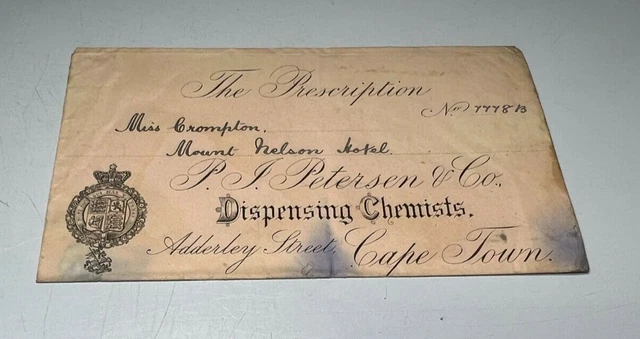 The Prescription
No. 7778 B
Miss Crompton.
Mount Nelson Hotel.
P. J. Petersen & Co.,
Dispensing Chemists.
Adderley Street, Cape Town.